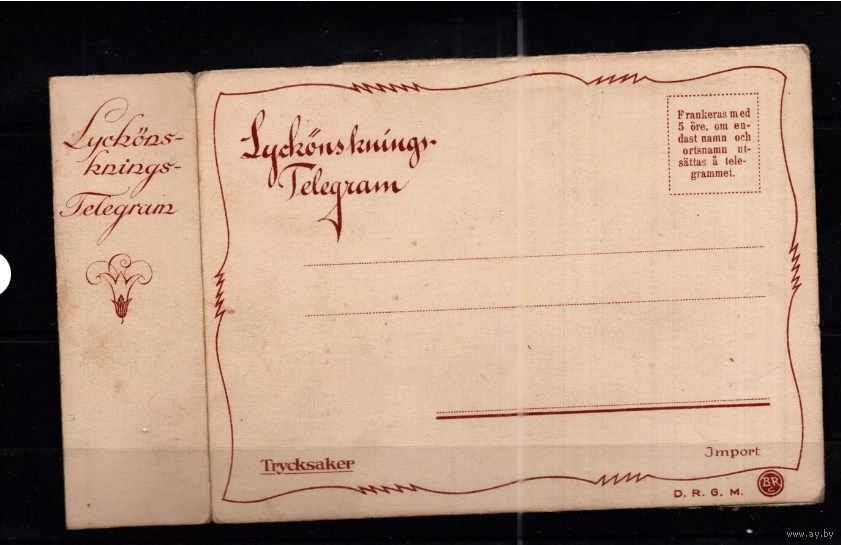 Lycköns-
knings-
Telegram
Lyckönsknings-
Telegram
Frankeras med
5 öre, om en-
dast namn och
ortsnamn ut-
sättas å tele-
grammet.
Trycksaker
Import
D. R. G. M.
BR
www.ay.by